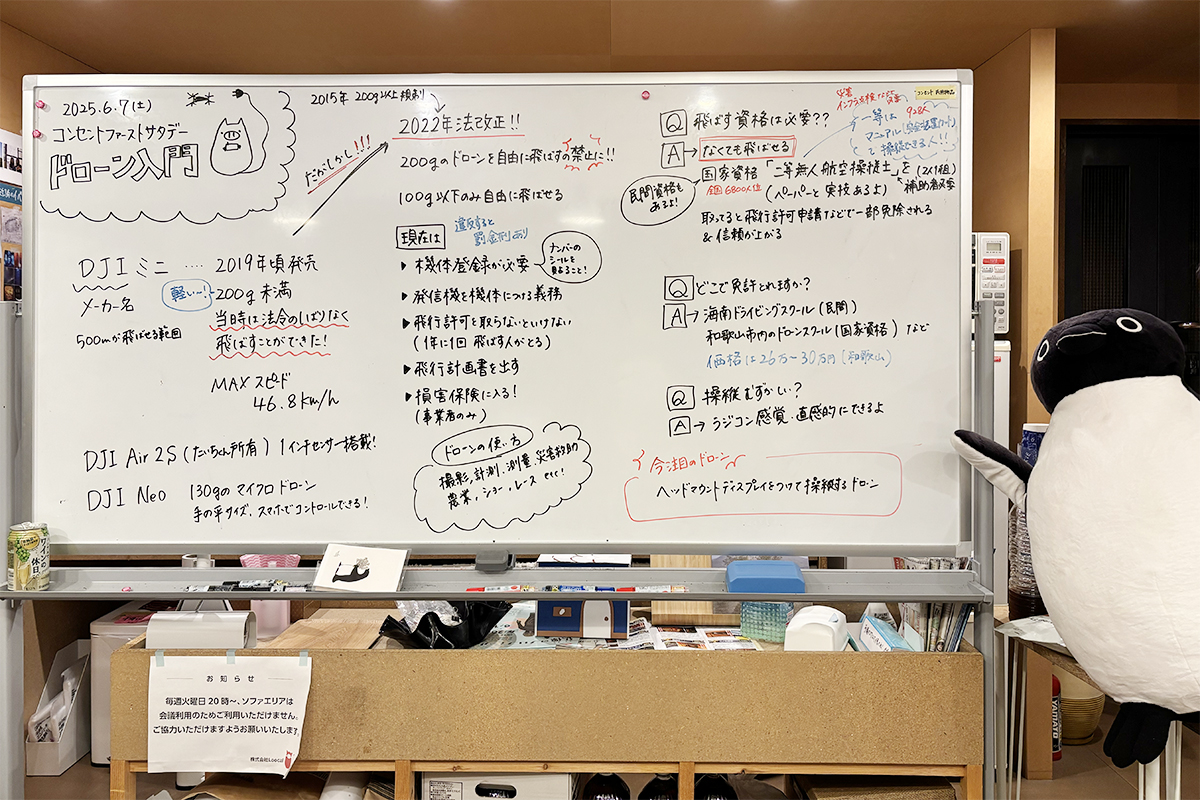 2025.6.7(土)
コンセントファーストサタデー
ドローン入門
DJI ミニ ‥‥ 2019年頃発売
メーカー名
軽いー!
200g未満
500mが飛ばせる範囲
当時は法令のしばりなく
飛ばすことができた!
MAXスピード
46.8km/h
DJI Air 2S (たいちゃん所有) 1インチセンサー搭載!
DJI Neo 130gのマイクロドローン
手の平サイズ、スマホでコントロールできる!
だがしかし!!!
2015年 200g以上規制
2022年法改正!!
200gのドローンを自由に飛ばすの禁止に!!
100g以下のみ自由に飛ばせる
現在は
違反すると
罰金刑あり
▶機体登録が必要
ナンバーの
シールを
貼ること!
▶発信機を機体につける義務
▶飛行許可を取らないといけない
(1年に1回 飛ばす人がとる)
▶飛行計画書を出す
▶損害保険に入る!
(事業者のみ)
ドローンの使い方
撮影,計測,測量,災害救助
農業,ショー,レース etc!
Q 飛ばす資格は必要??
A なくても飛ばせる
国家資格「二等無人航空操縦士」を
全国6800人位
(ペーパーと実技あるよ)
民間資格も
あるよ!
(2人1組)
補助者必要
取ってると飛行許可申請などで一部免除される
&信頼が上がる
災害
インフラ点検など
一等は
928人
マニュアル
で操縦できる人!!
コンセント 共用物品
Q どこで免許とれますか?
A→ 海南ドライビングスクール(民間)
和歌山市内のドローンスクール(国家資格)など
価格は26万〜30万円(和歌山)
Q 操縦むずかしい?
A→ ラジコン感覚、直感的にできるよ
今注目のドローン
ヘッドマウントディスプレイをつけて操縦するドローン
休日
お知らせ
毎週火曜日20時〜、ソファエリアは
会議利用のためご利用いただけません。
ご協力いただけますようお願いいたします。
YAMATO